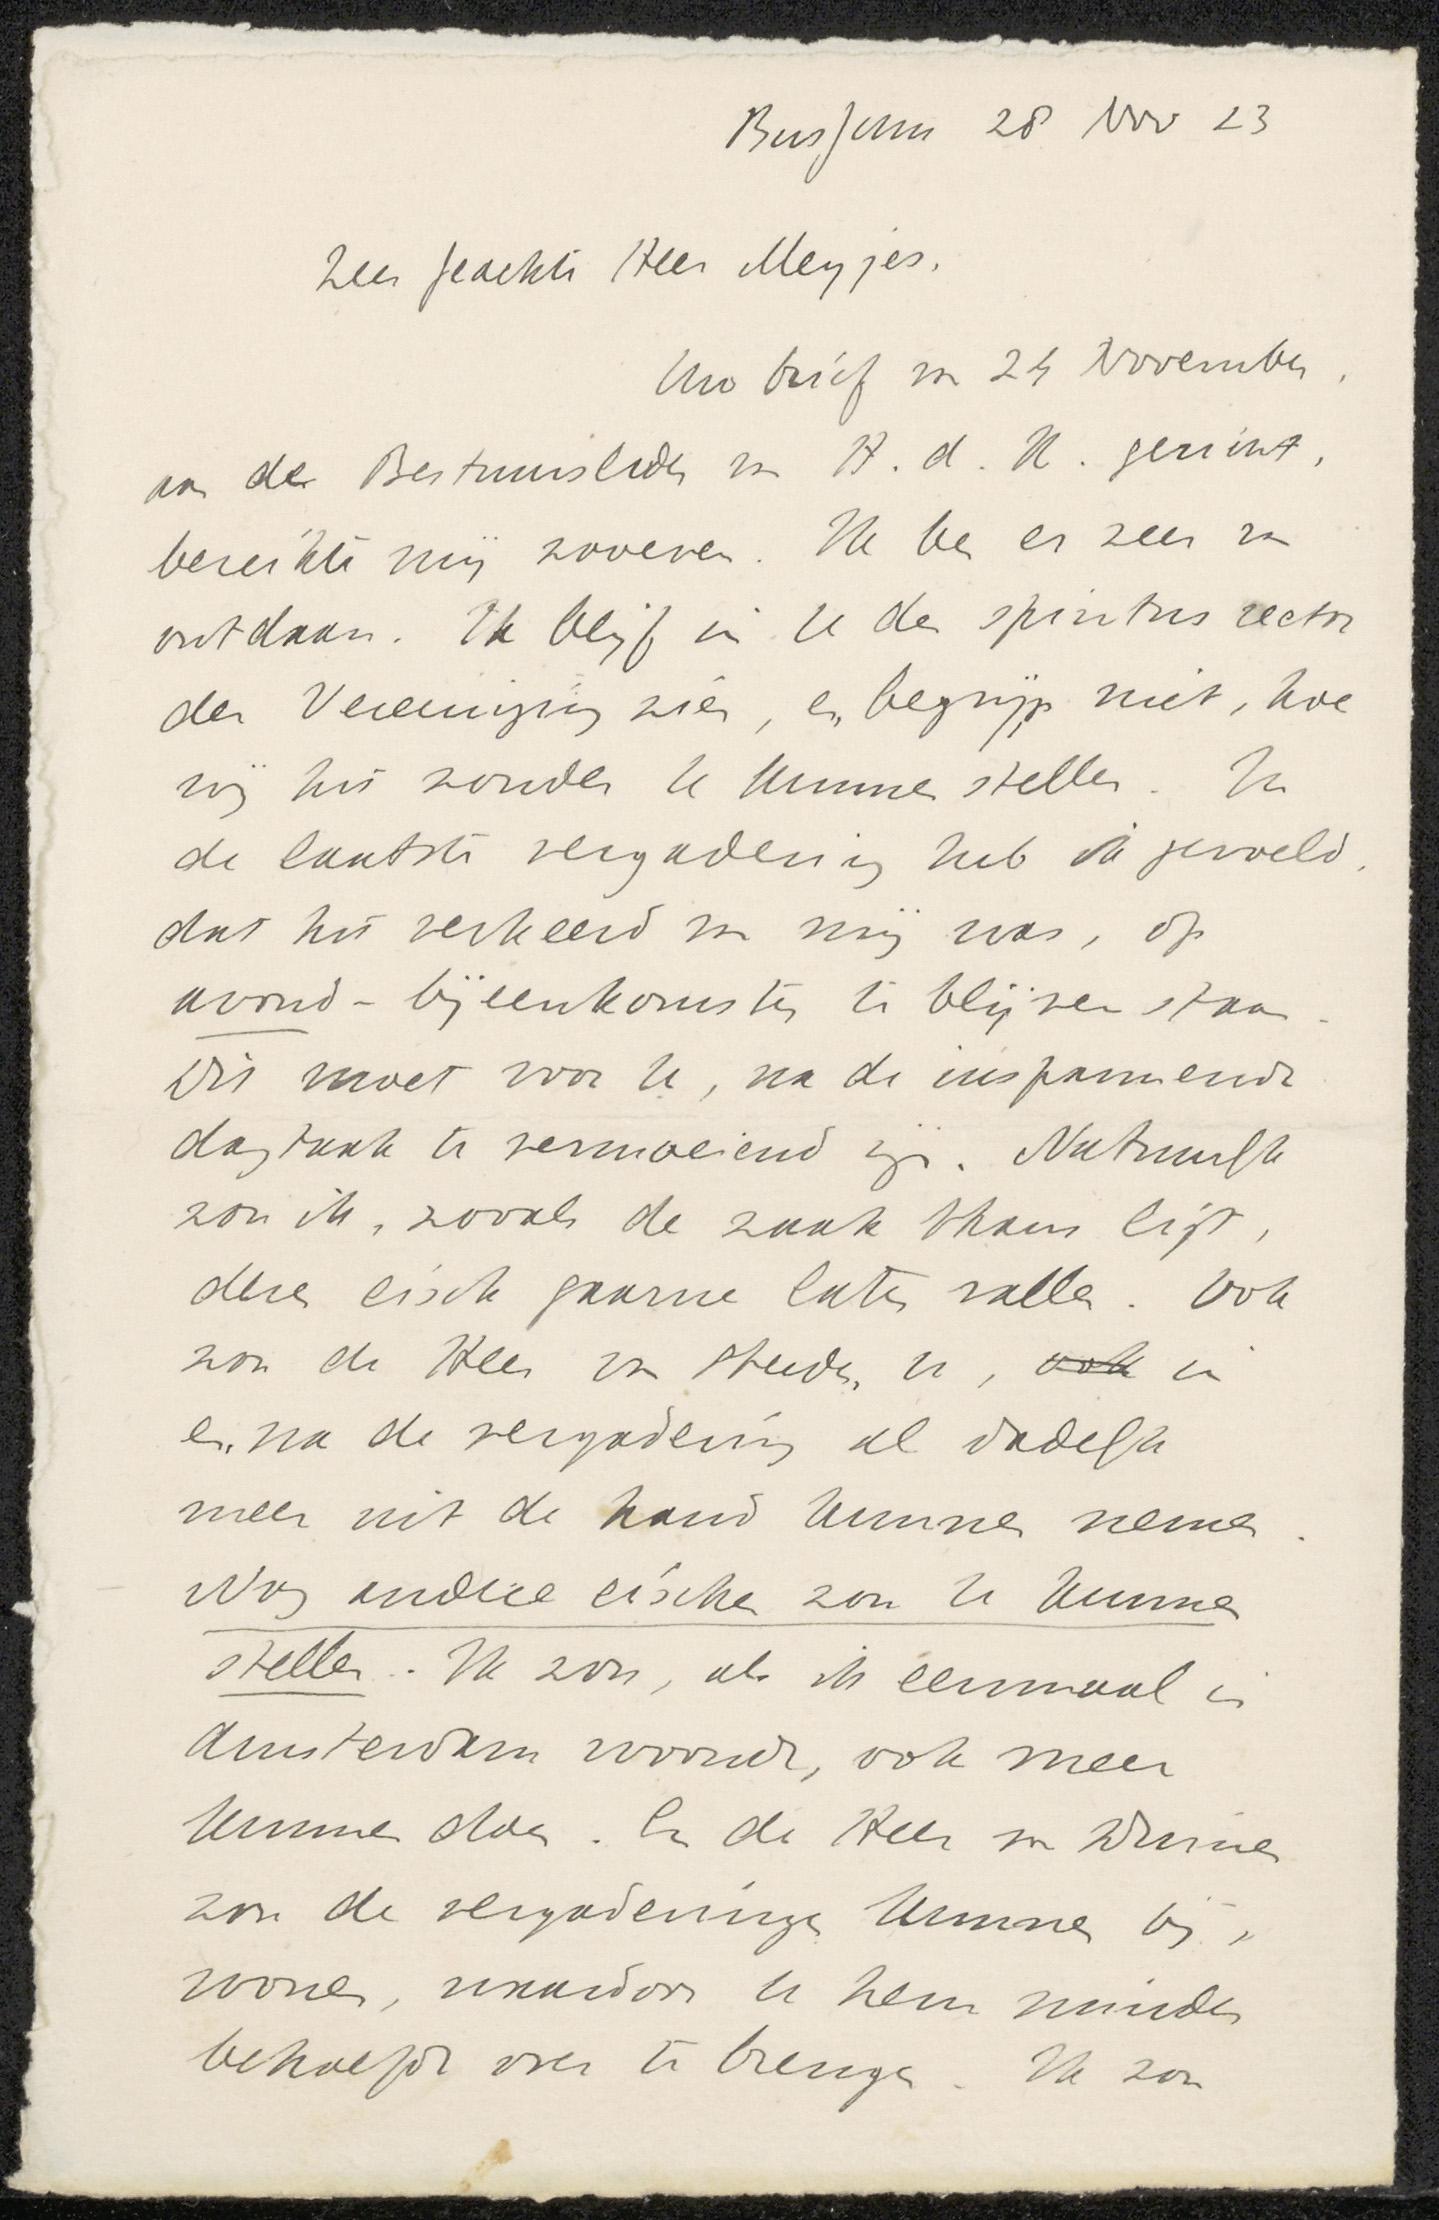 Bussum 28 Nov 23
Zeer geachte Heer Meyjes.
Uw brief van 24 November,
aan de Bestuursleden van H. d. K. gericht,
bereikte mij zooeven. Ik ben er zeer van
ontdaan. Ik blijf in U den spiritus rector
der Vereeniging zien, en begrijp niet, hoe
wij het zonder U kunnen stellen. In
de laatste vergadering heb ik gevoeld,
dat het verkeerd van mij was, op
avond-bijeenkomsten te blijven staan.
Dit moet voor U, na de inspannende
dagtaak te vermoeiend zijn. Natuurlijk
zou ik, zooals de zaak thans ligt,
dezen eisch gaarne laten vallen. Ook
zou de Heer van U, ook in
en na de vergadering al dadelijk
meer uit de hand kunnen nemen.
Nog andere eischen zou U kunnen
stellen. Ik zou, als ik eenmaal in
Amsterdam woonde, ook meer
kunnen doen. En de Heer van Deinen
zou de vergaderingen kunnen bij-
wonen, waardoor U hem minder
behoefde over te brengen. Ik zou